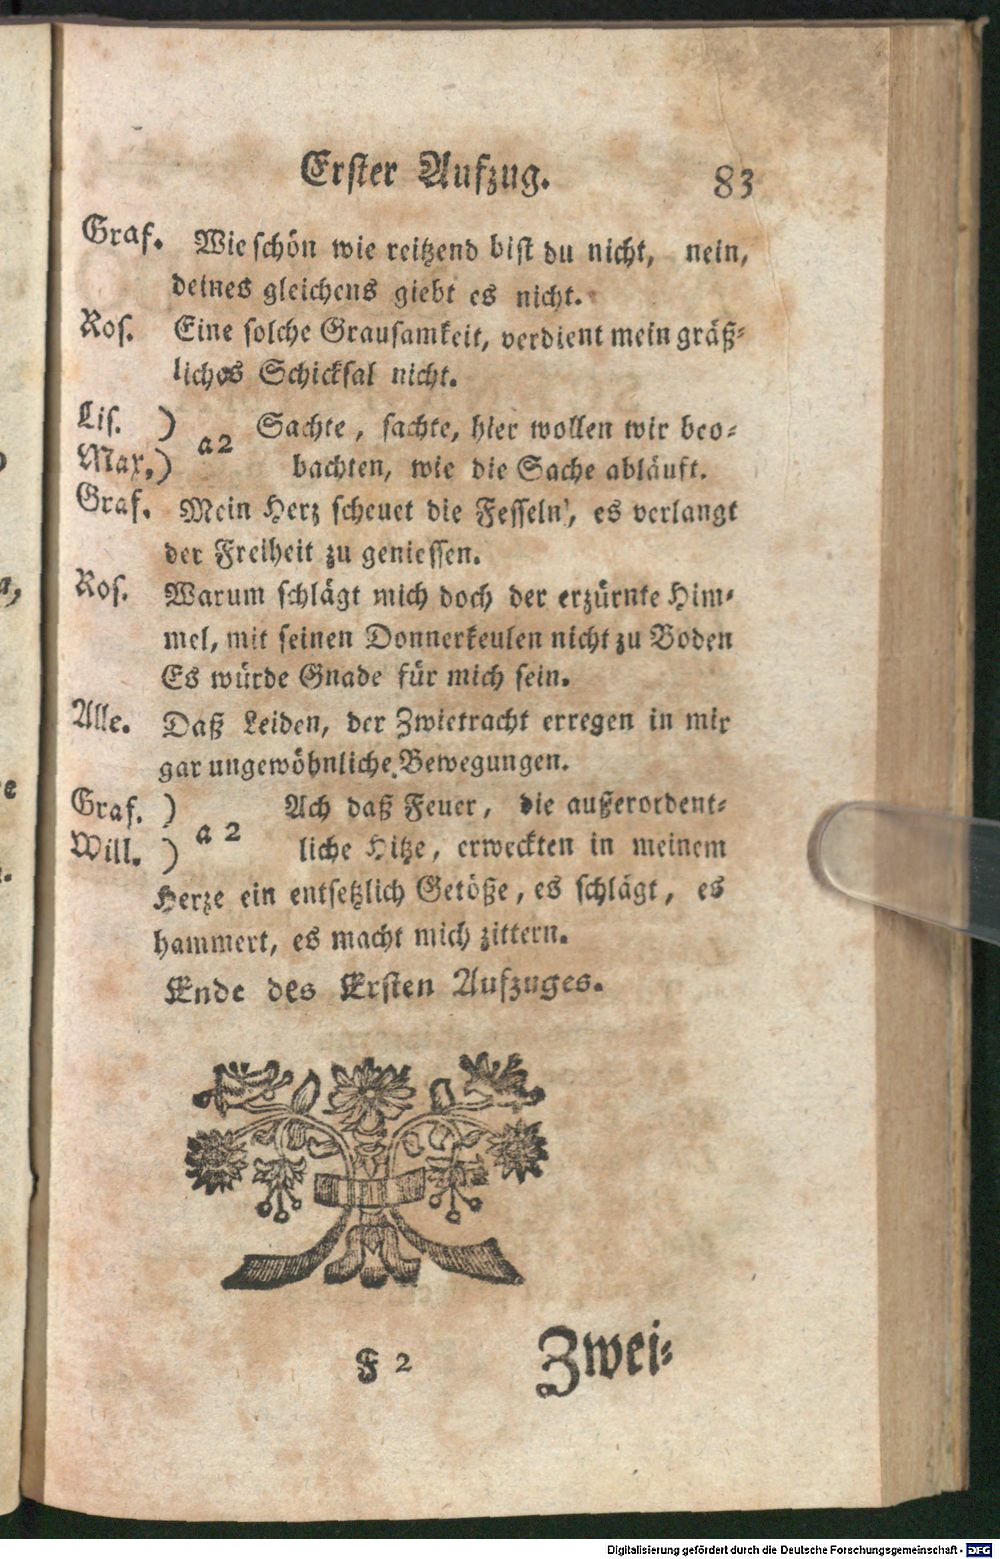 Erster Aufzug. 83
Graf. Wie schön wie reitzend bist du nicht, nein,
deines gleichens giebt es nicht.
Ros. Eine solche Grausamkeit, verdient mein gräß-
liches Schicksal nicht.
Lis. ) a 2 Sachte, sachte, hier wollen wir beo-
Max.) bachten, wie die Sache abläuft.
Graf. Mein Herz scheuet die Fesseln, es verlangt
der Freiheit zu geniessen.
Ros. Warum schlägt mich doch der erzürnte Him-
mel, mit seinen Donnerkeulen nicht zu Boden
Es würde Gnade für mich sein.
Alle. Daß Leiden, der Zwietracht erregen in mir
gar ungewöhnliche Bewegungen.
Graf. ) a 2 Ach daß Feuer, die außerordent-
Will. ) liche Hitze, erweckten in meinem
Herze ein entsetzlich Getöße, es schlägt, es
hammert, es macht mich zittern.
Ende des Ersten Aufzuges.
F 2 Zwei-
Digitalisierung gefördert durch die Deutsche Forschungsgemeinschaft - DFG